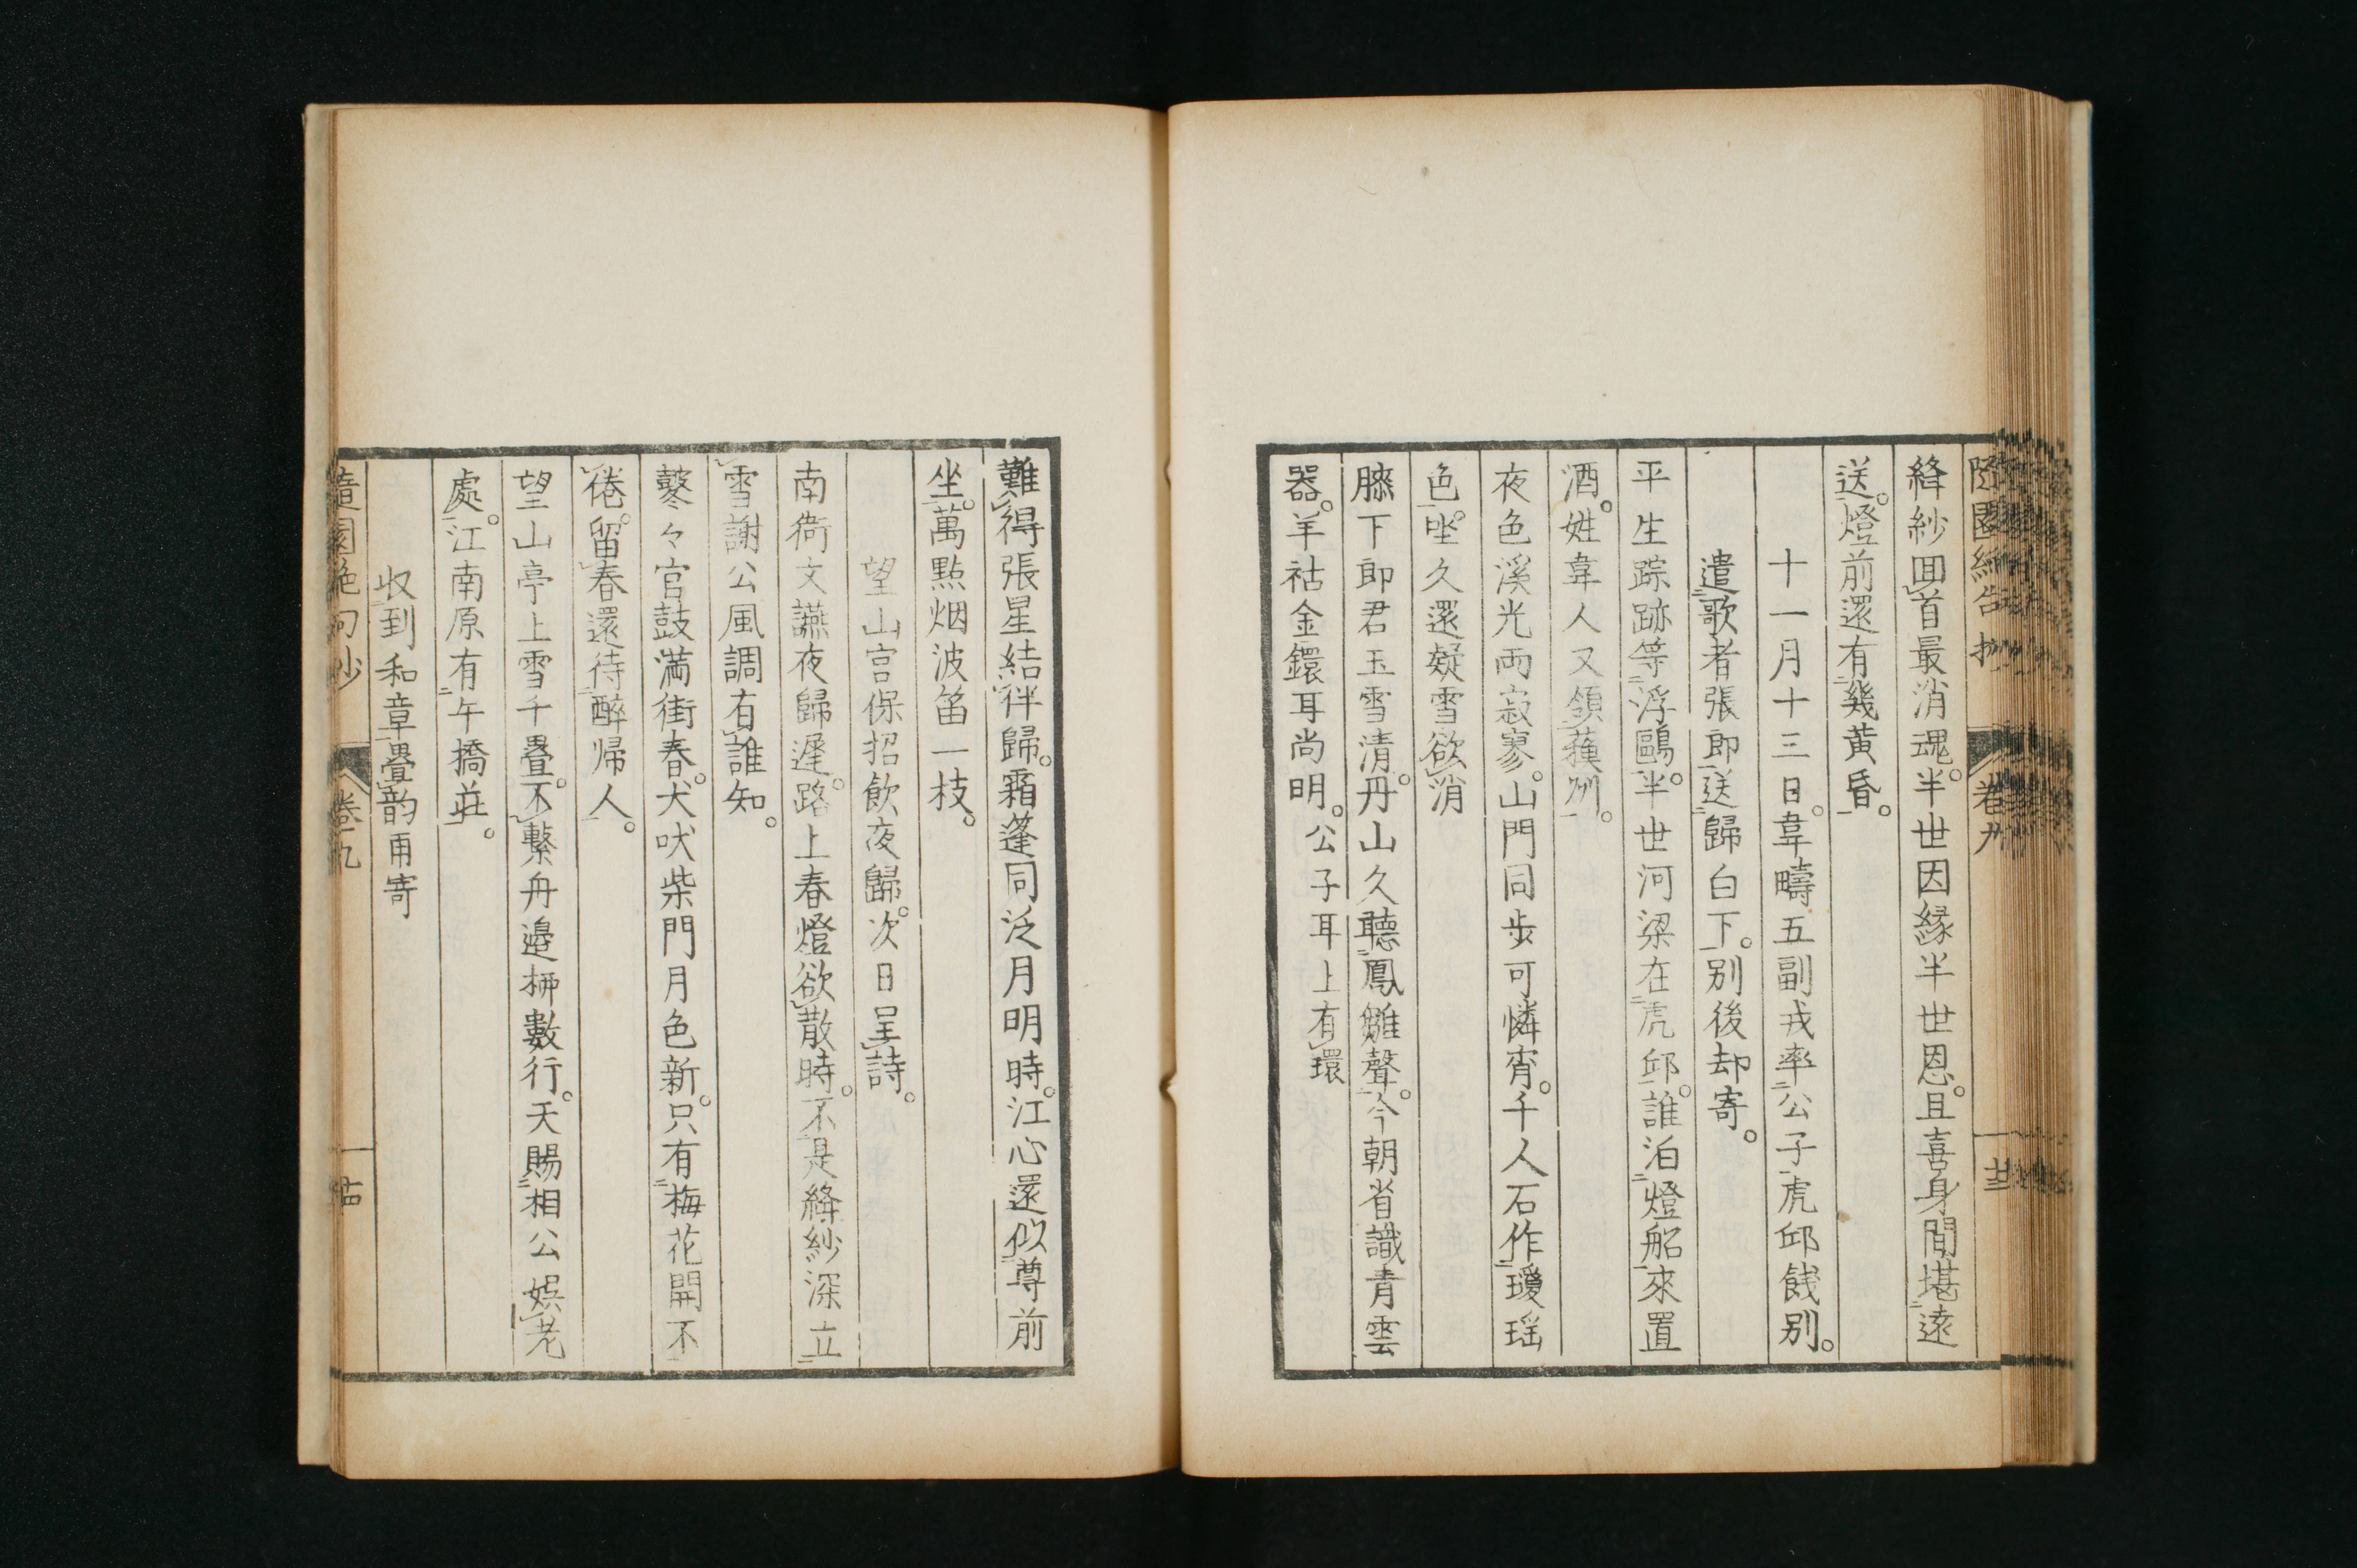 隨園絶句抄 卷九 廿三
絳紗回首最消魂。半世因緣半世恩。且喜身間堪遠
送。燈前還有幾黃昏。
十一月十三日。韋疇五副戎率公子虎邱餞別。
遣歌者張郎送歸白下。別後却寄。
平生踪跡等浮鷗。半世河梁在虎邱。誰泊燈船來置
酒。姓韋人又領蘓州。
夜色溪光兩寂寥。山門同步可憐宵。千人石作瓊瑶
色。坐久還疑雪欲消
膝下郎君玉雪清。丹山久聽鳳雛聲。今朝省識青雲
器。羊祜金鐶耳尚明。公子耳上有環
難得張星結伴歸。霜蓬同泛月明時。江心還似尊前
坐。萬點烟波笛一枝。
望山宮保招飲夜歸。次日呈詩。
南衙文讌夜歸遲。路上春燈欲散時。不是絳紗深立
雪謝公風調有誰知。
鼕々官鼓滿街春。犬吠柴門月色新。只有梅花開不
倦。留春還待醉帰人。
望山亭上雪千疊。不繫舟邉栁數行。天賜相公娯老
處。江南原有午橋莊。
收到和章疊韵再寄
隨園絶句抄 卷九 廿四